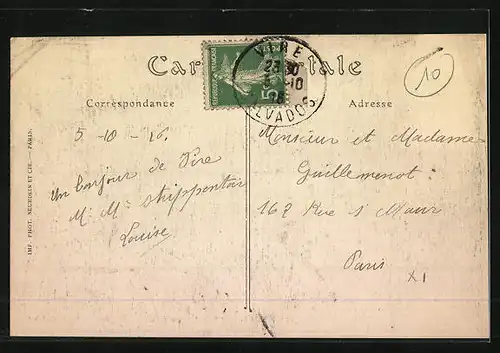 Carte Postale
Correspondance
Adresse
VIRE
23 30
5-10
CALVADOS
REPUBLIQUE FRANÇAISE
POSTES
5c
10
5-10-16.
Un bonjour de Vire
M. Me
Louise
Monsieur et Madame
Guillemenot
162 Rue St Maur
Paris
XI
IMP. PHOT. NEURDEIN ET CIE. — PARIS.